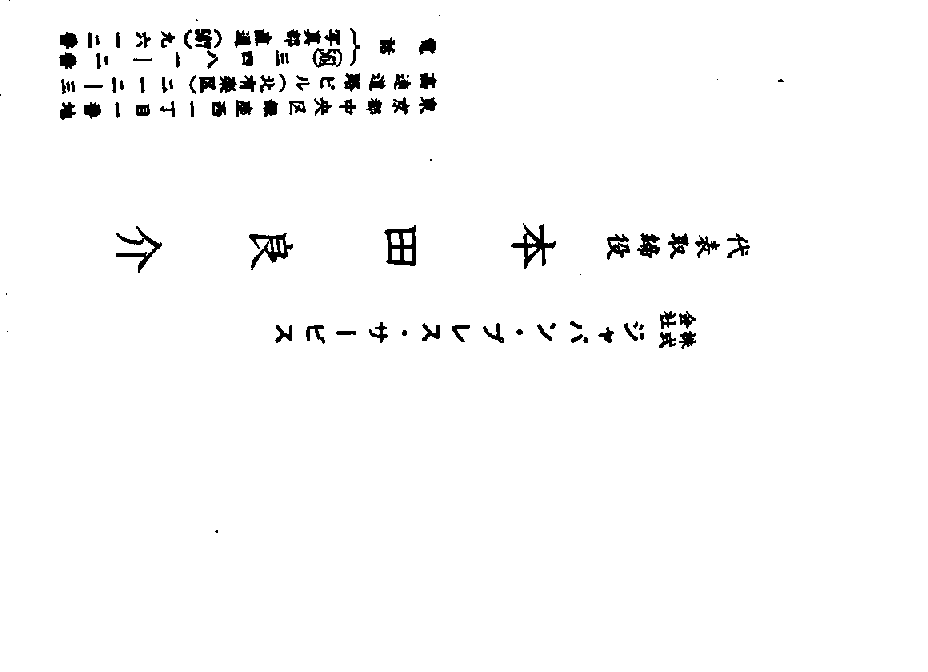 株式会社 ジャパン・プレス・サービス
代表取締役 本田良介
東京都中央区銀座西一丁目一番地
高速道路ビル(北有楽区)二一二ー三
電話 (561)三四八一ー二番
写真部直通(567)九六一二番